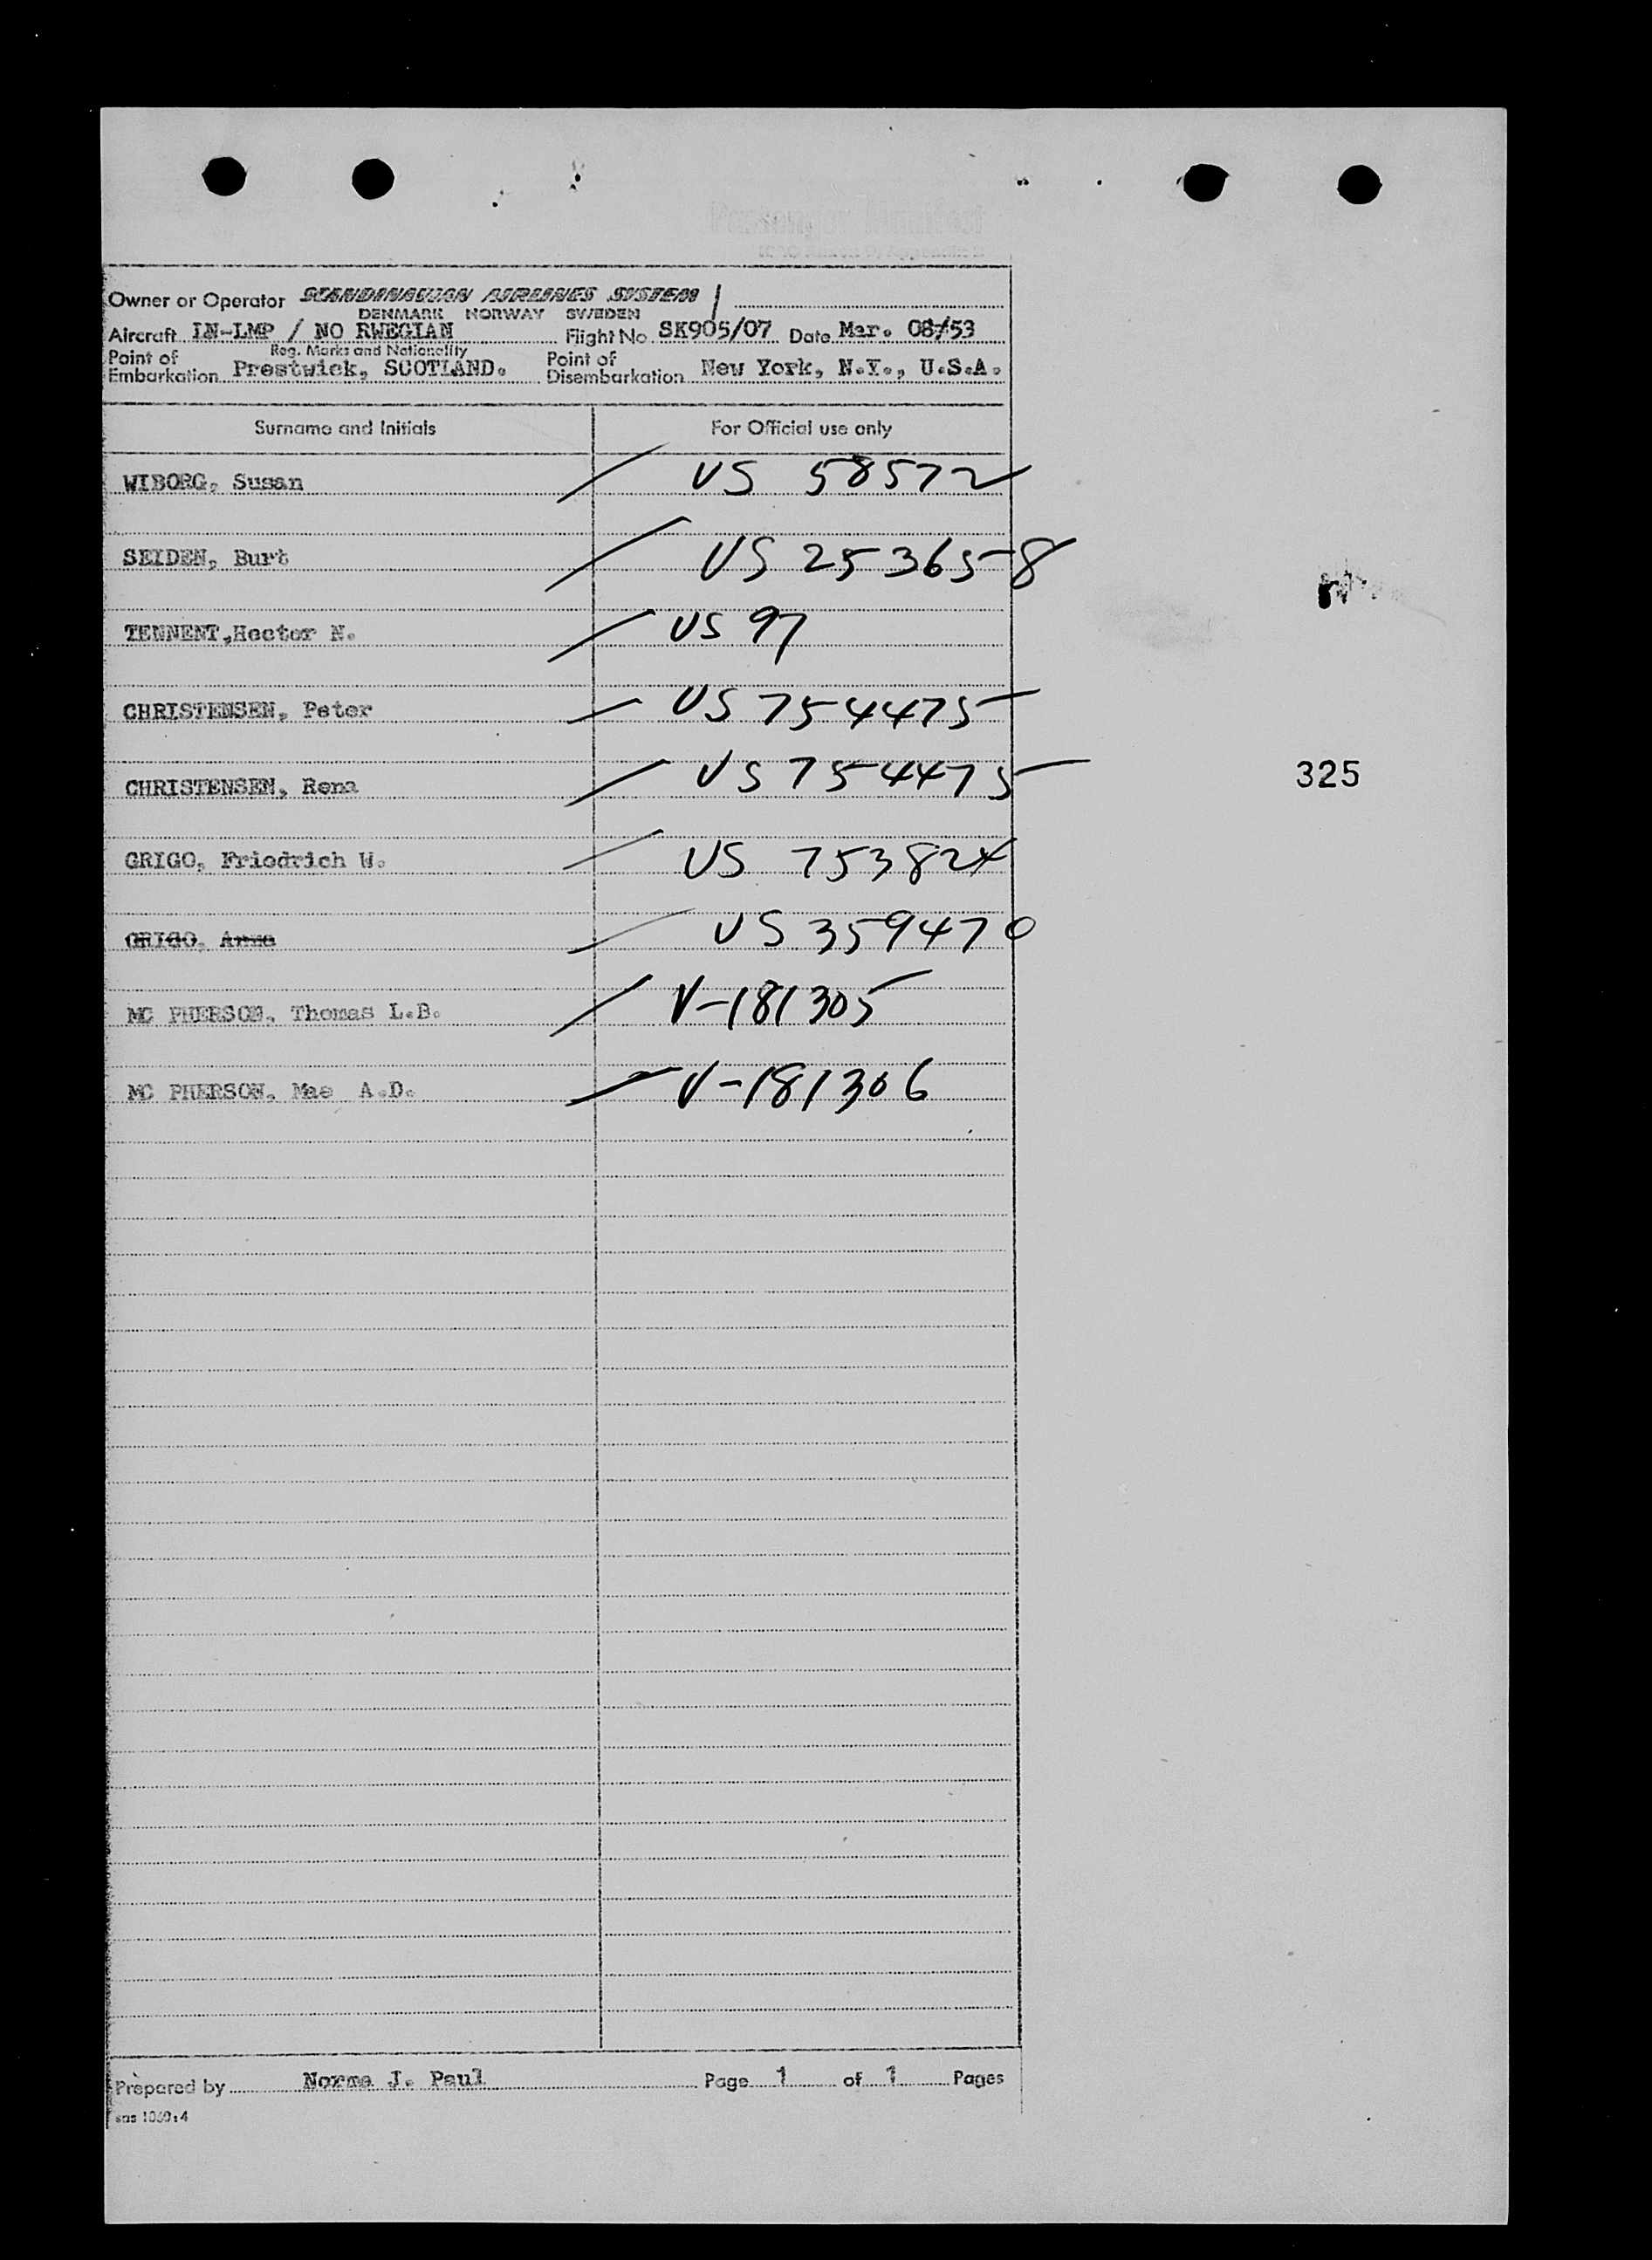 Owner or Operator SCANDINAVIAN AIRLINES SYSTEM
DENMARK NORWAY SWEDEN
Aircraft LN-LMP / NO RWEGIAN Flight No. SK905/07 Date Mar. 08/53
Reg. Marks and Nationality
Point of Embarkation Prestwick, SCOTLAND. Point of Disembarkation New York, N.Y., U.S.A.
Surname and Initials For Official use only
WIBORG, Susan US 58572
SEIDEN, Burt US 253658
TENNENT,Hector N. US 97
CHRISTENSEN, Peter US 754475
CHRISTENSEN, Rena US 754475
325
GRIGO, Friedrich W. US 753824
GRIGO, Anna US 359470
MC PHERSON, Thomas L.B. V-181305
MC PHERSON, Mae A.D. V-181306
Prepared by Norma J. Paul Page 1 of 1 Pages
sas 1060:4